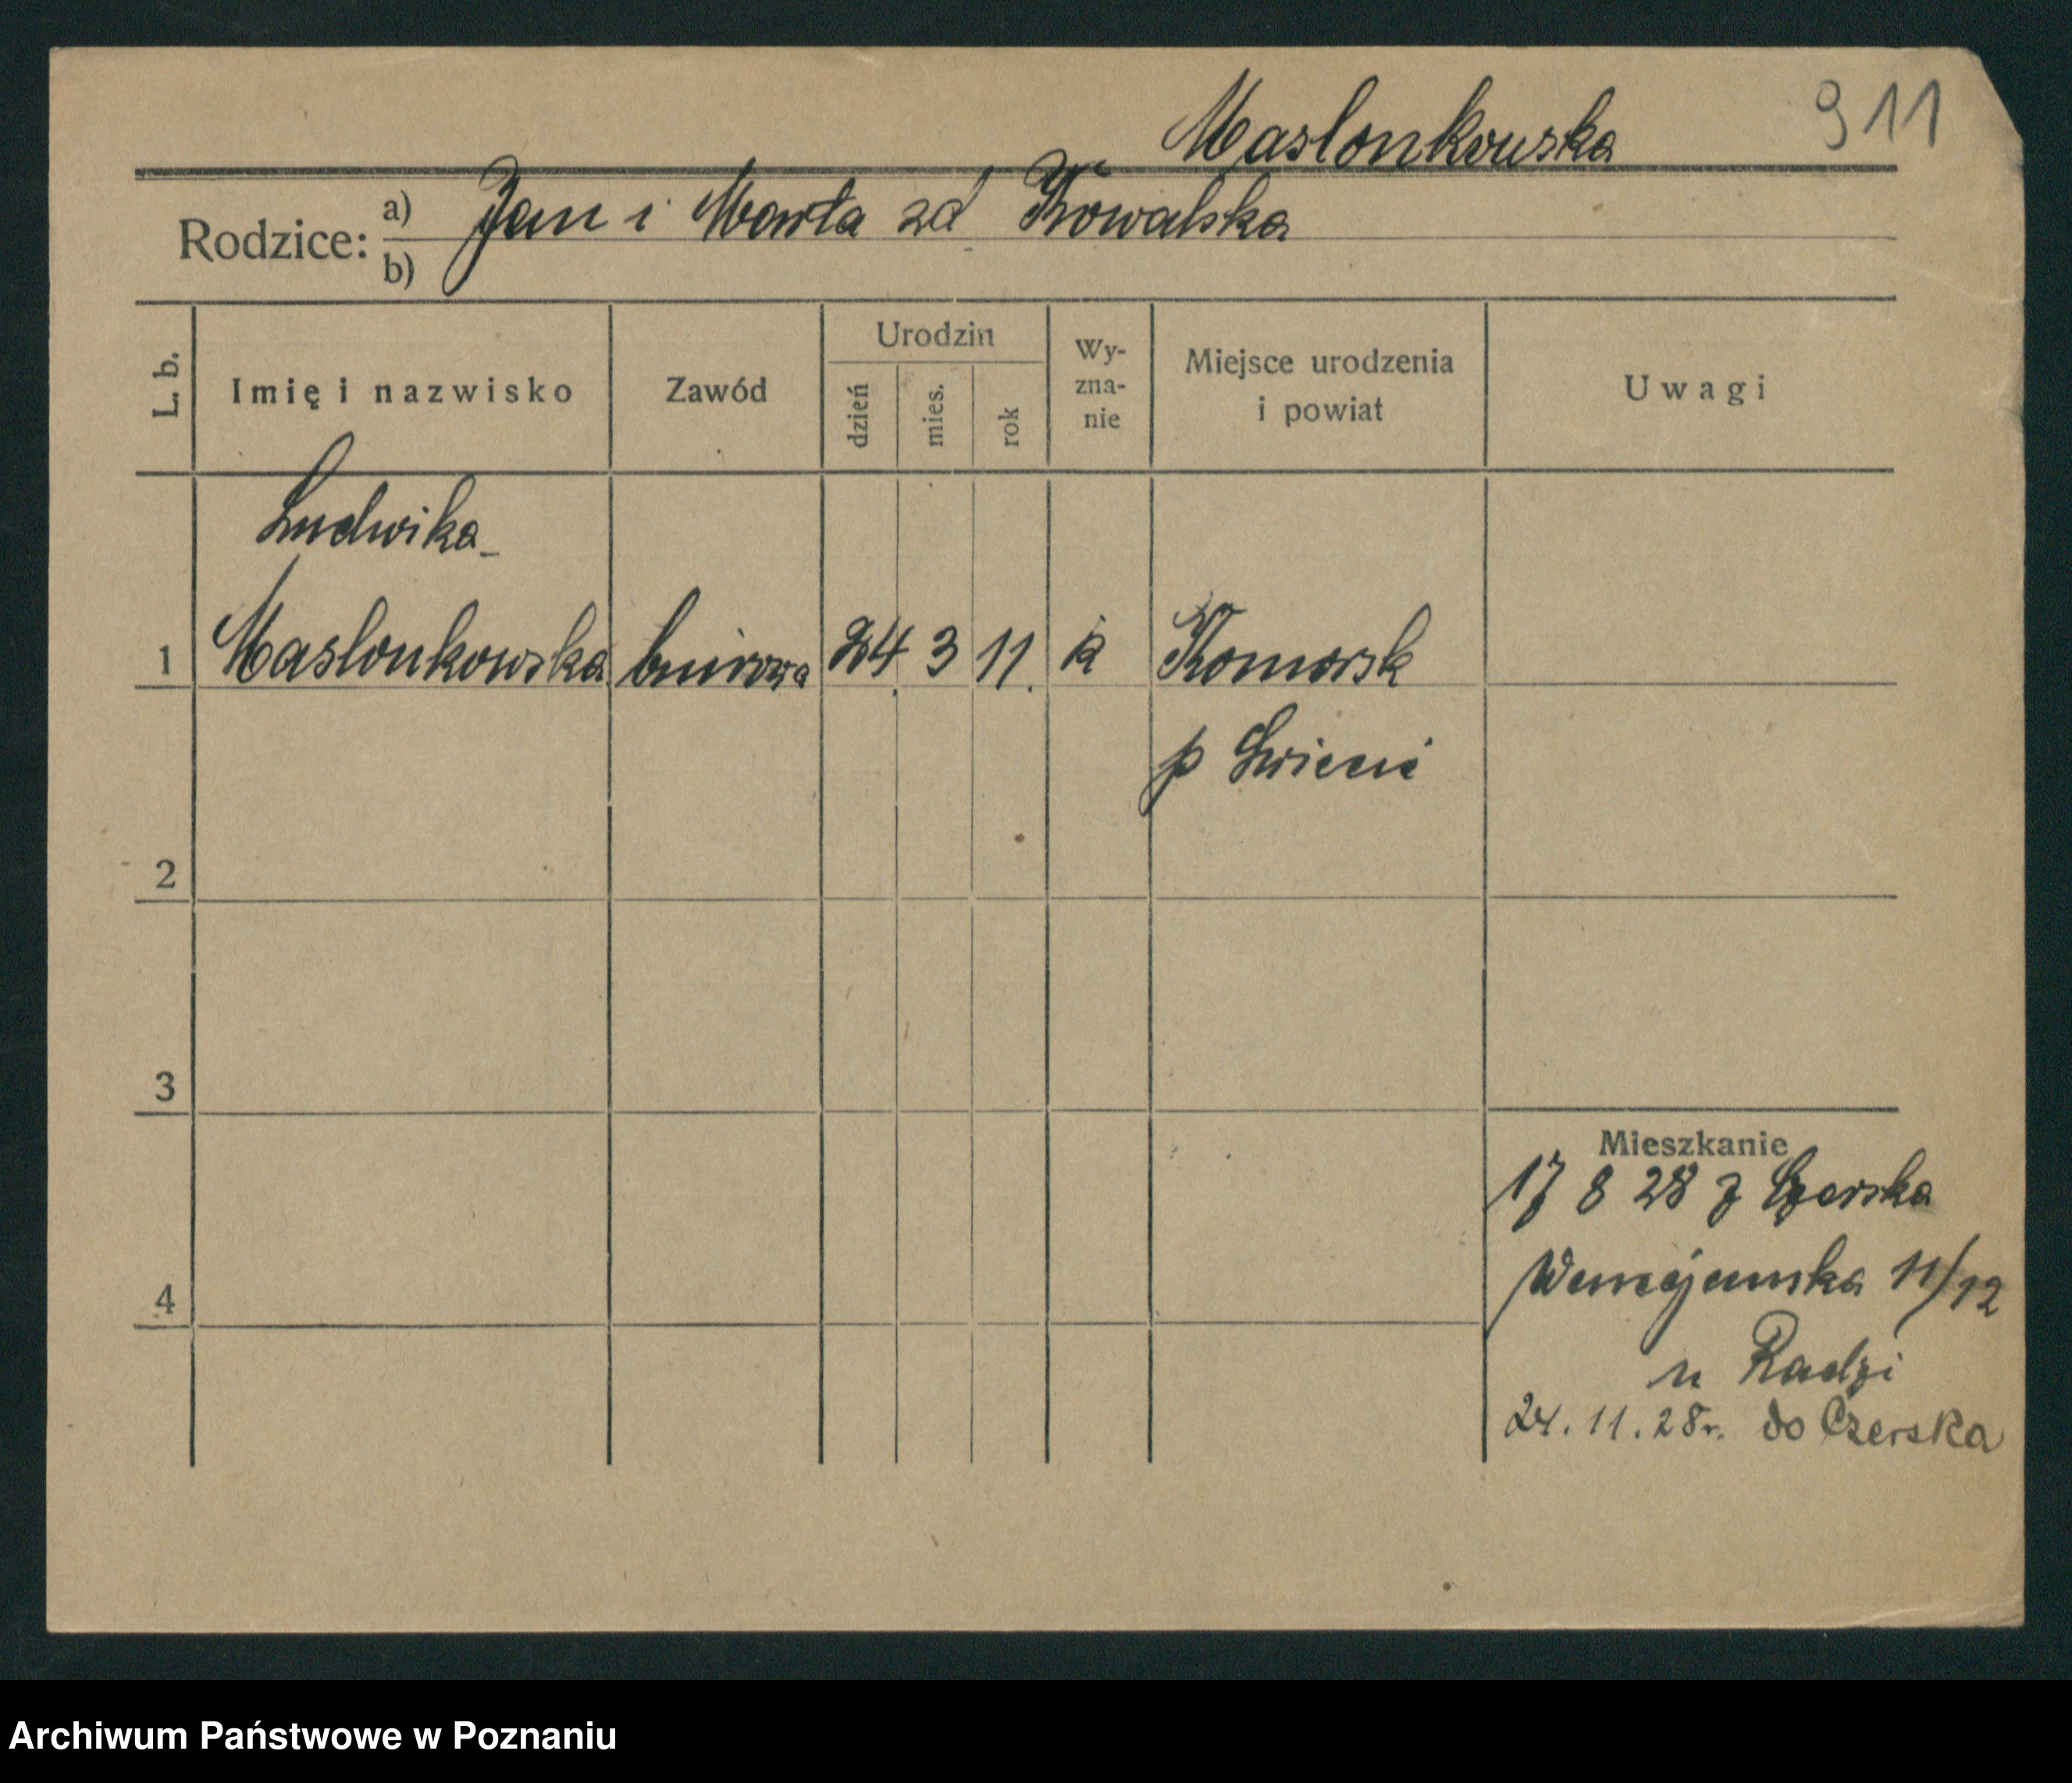 Maslonkowska 911
Rodzice: a) Jan i Marta zd Kowalska
b)
L. b. Imię i nazwisko Zawód Urodzin dzień mies. rok Wy-zna-nie Miejsce urodzenia i powiat Uwagi
Ludwika
1 Maslonkowska biurowa 24. 3 11. k Komorsk
p Świecie
2
3
Mieszkanie
17 8 28 z Czerska
4 11/12
u Radzi
24. 11. 28r. do Czerska
Archiwum Państwowe w Poznaniu